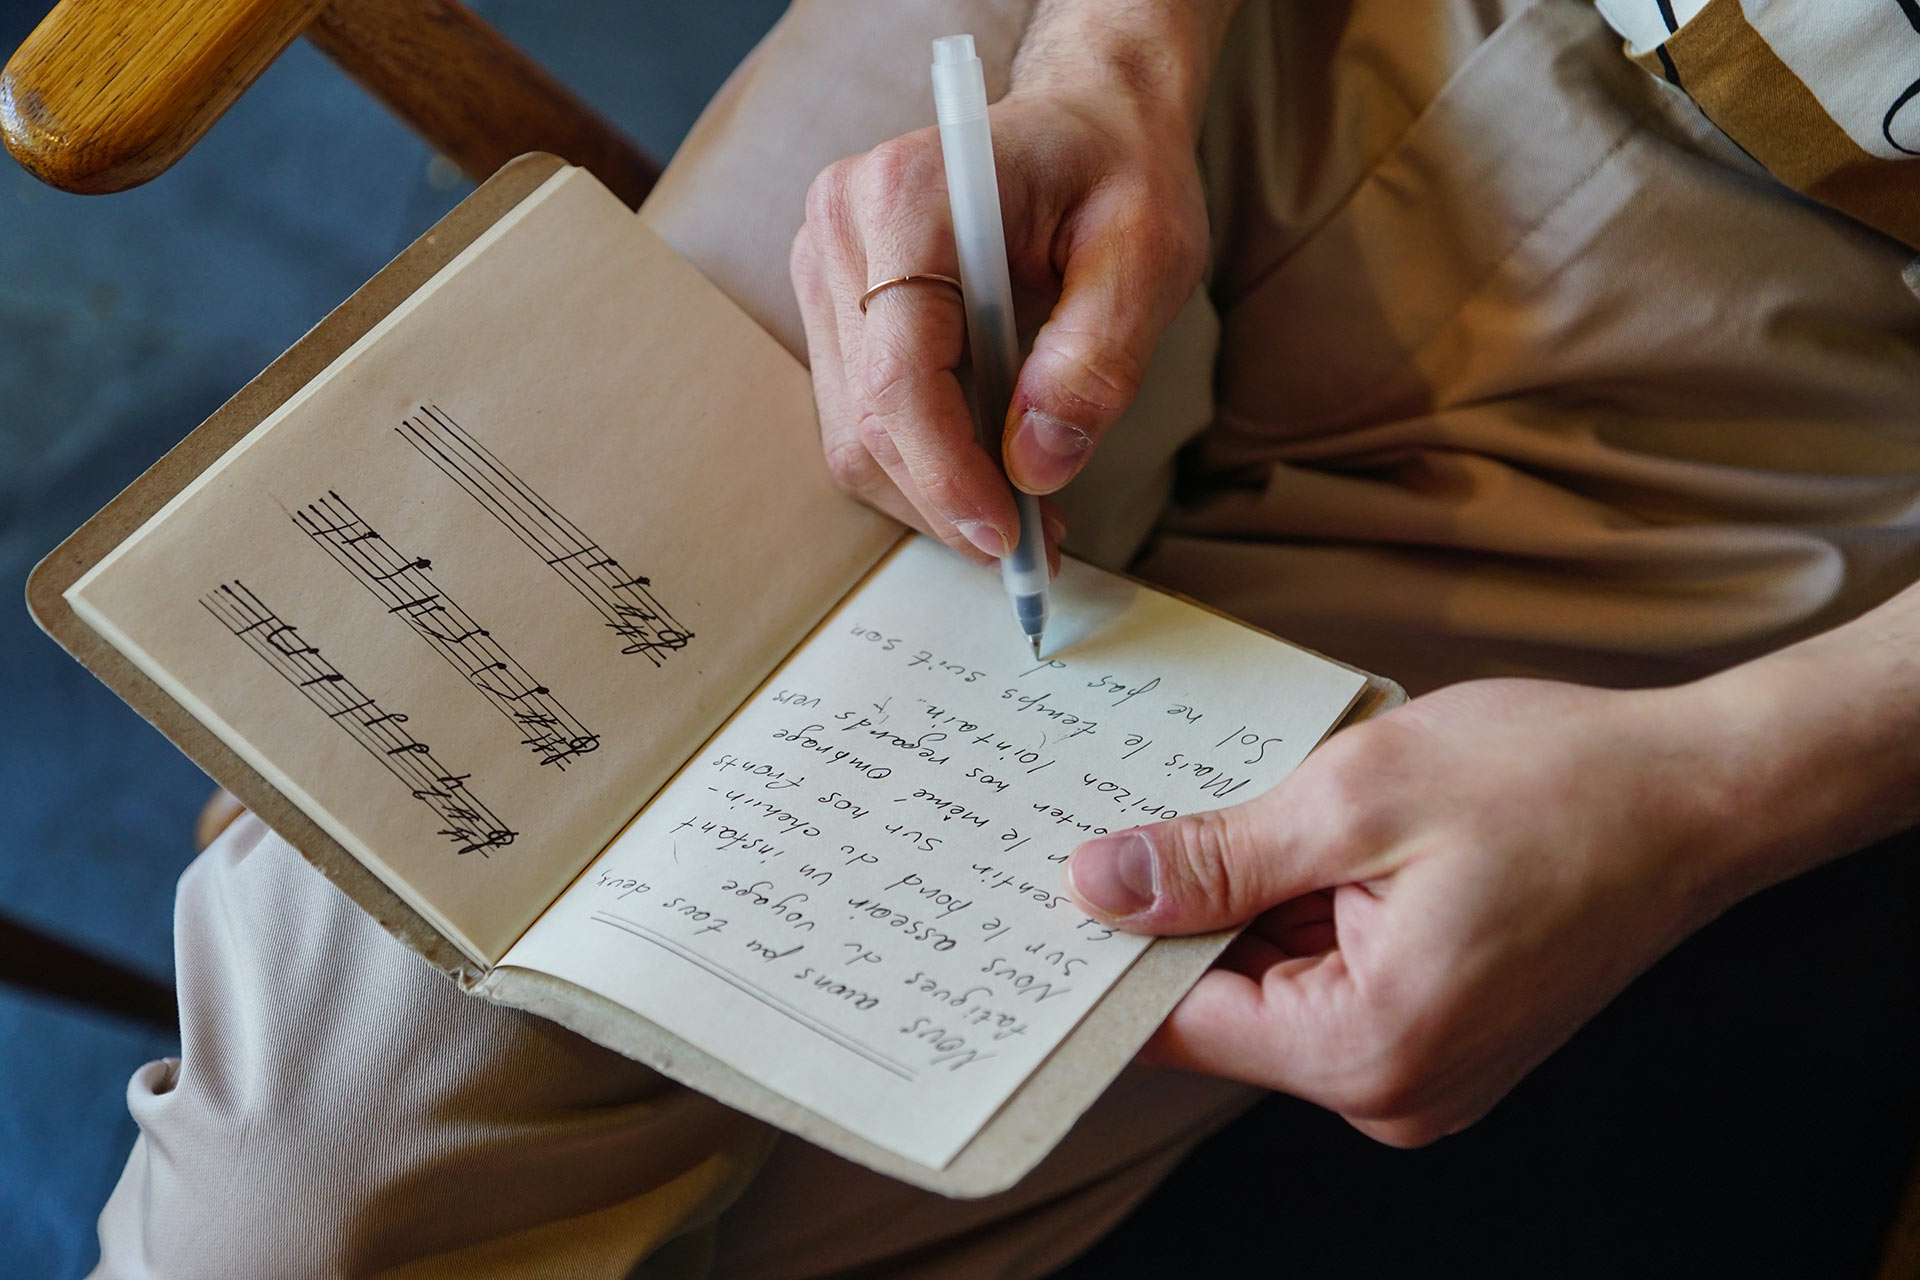 Nous avons pu tous deux,
fatigues du voyage
Nous asseoir un instant
sur le bord du chemin-
Et sentir sur nos fronts
le même, ombrage
nos regards vers
orizon lointain..
Mais le temps suit son
Sol ne pas d